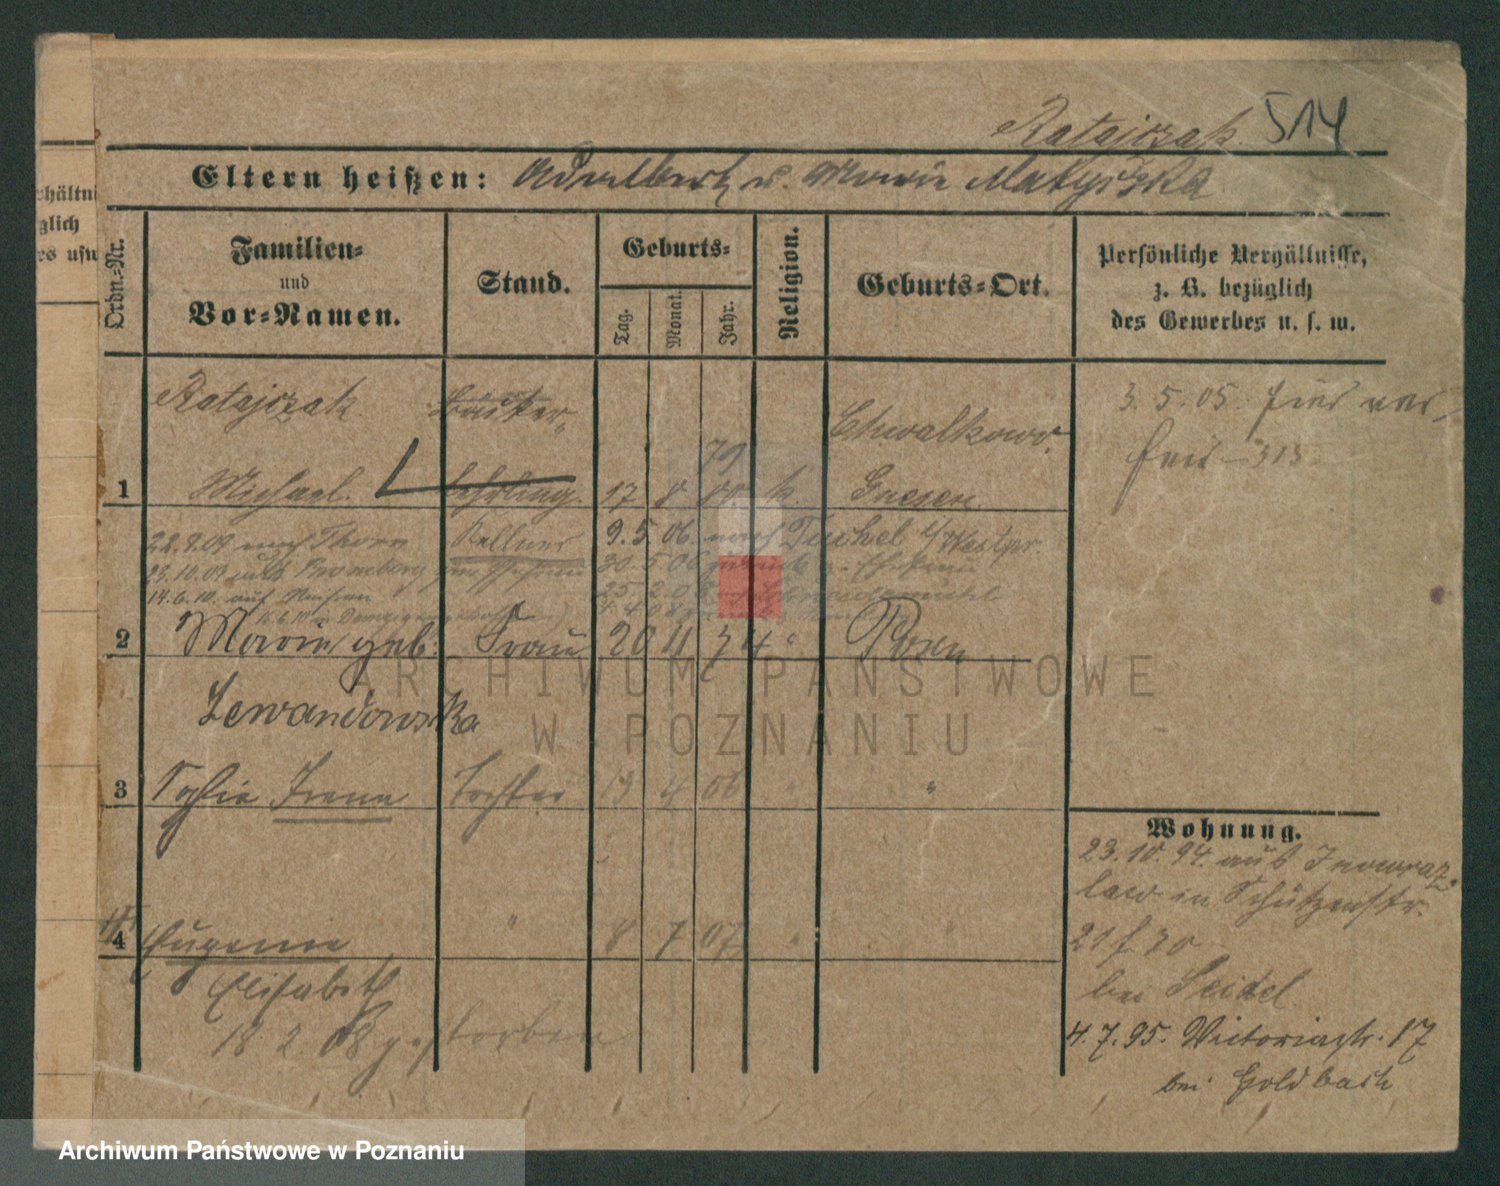 Ratajczak. 514
Eltern heißen: Adalbert u. Marie Matyszka
Ordn.-Nr.
Familien-
und
Vor-Namen.
Stand.
Geburts-
Tag.
Monat.
Jahr.
Religion.
Geburts-Ort.
Persönliche Verhältnisse,
z. B. bezüglich
des Gewerbes u. s. w.
Ratajczak
Chwalkowo.
3. 5. 05.
79
1 Michael. Lehrling. 17 8 80 k. Gnesen
22.9.09 nach Thorn Kellner 9. 5 06. nach Tuchel i/Westpr.
23.10.09 aus Bromberg zur Ehefrau 30. 5 06 zurück z. Ehefrau
14.6.10. auf Reisen 25. 2 08 Schneidemühl
2 Marie geb. Frau 20 11 74 " Posen
Lewandowska
3 Sofie Irene Tochter 13 4 06 " "
4 Eugenie " 8 7 07 "
Elisabeth
18 2 08 gestorben
Wohnung.
23.10.94. aus Inowraz-
law in Schützenstr.
21 f. 20
bei Seidel
4.7.95. Victoriastr. 17
bei Goldbach
ARCHIWUM PAŃSTWOWE
W POZNANIU
Archiwum Państwowe w Poznaniu